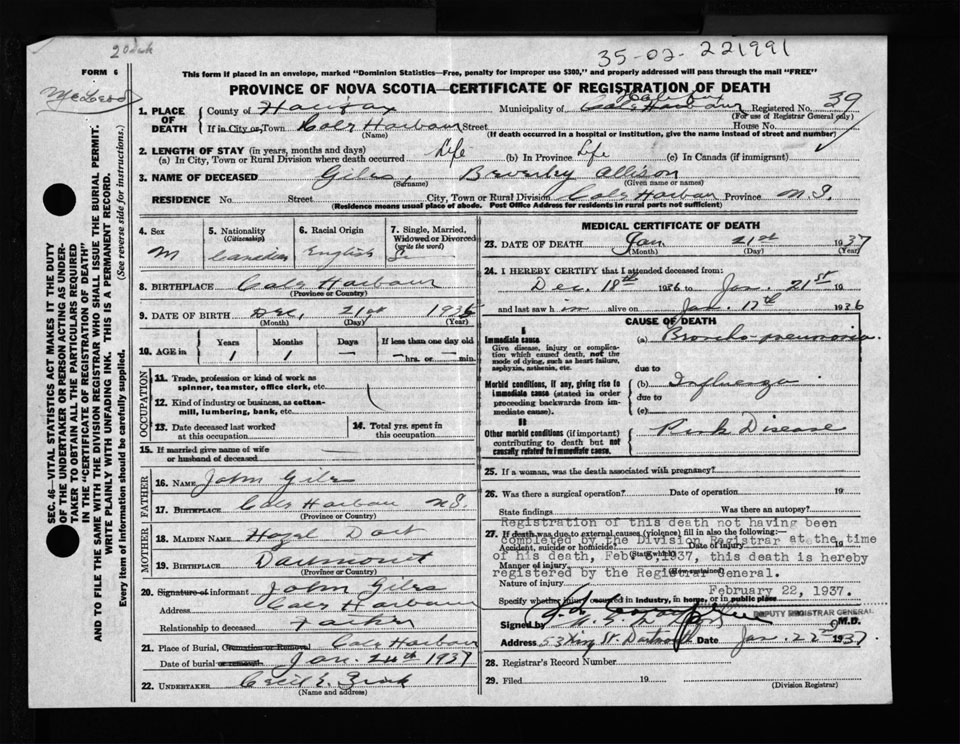 20
35-02-221991
FORM 6
This form if placed in an envelope, marked "Dominion Statistics—Free, penalty for improper use $300," and properly addressed will pass through the mail "FREE"
McLeod
PROVINCE OF NOVA SCOTIA—CERTIFICATE OF REGISTRATION OF DEATH
1. PLACE OF DEATH County of Halifax Municipality of Cole Harbour Registered No. 39
(For use of Registrar General only)
If in City or Town Cole Harbour Street House No.
(Name) (If death occurred in a hospital or institution, give the name instead of street and number)
2. LENGTH OF STAY (in years, months and days)
(a) In City, Town or Rural Division where death occurred Life (b) In Province Life (c) In Canada (if immigrant)
3. NAME OF DECEASED Giles, Beverley Allison
(Surname) (Given name or names)
RESIDENCE No. Street City, Town or Rural Division Cole Harbour Province N.S.
(Residence means usual place of abode. Post Office Address for residents in rural parts not sufficient)
SEC. 46—VITAL STATISTICS ACT MAKES IT THE DUTY
OF THE UNDERTAKER OR PERSON ACTING AS UNDER-
TAKER TO OBTAIN ALL THE PARTICULARS REQUIRED
IN THE "CERTIFICATE OF REGISTRATION OF DEATH"
AND TO FILE THE SAME WITH THE DIVISION REGISTRAR WHO SHALL ISSUE THE BURIAL PERMIT.
WRITE PLAINLY WITH UNFADING INK. THIS IS A PERMANENT RECORD.
Every item of information should be carefully supplied. (See reverse side for instructions.)
4. Sex 5. Nationality 6. Racial Origin 7. Single, Married,
(Citizenship) Widowed or Divorced
(write the word)
M Canadian English S
8. BIRTHPLACE Cole Harbour
(Province or Country)
9. DATE OF BIRTH Dec. 21st 1935
(Month) (Day) (Year)
10. AGE in Years Months Days If less than one day old
1 1 — — hrs. or — min.
OCCUPATION
11. Trade, profession or kind of work as
spinner, teamster, office clerk, etc.
12. Kind of industry or business, as cotton-
mill, lumbering, bank, etc.
13. Date deceased last worked
at this occupation
14. Total yrs. spent in
this occupation
15. If married give name of wife
or husband of deceased
FATHER
16. Name John Giles
17. Birthplace Cole Harbour N.S.
(Province or Country)
MOTHER
18. Maiden Name Hazel
19. Birthplace Dartmouth
(Province or Country)
20. Signature of informant John Giles
Address Cole Harbour
Relationship to deceased Father
21. Place of Burial, Cremation or Removal Cole Harbour
Date of burial or removal Jan. 24th 1937
22. UNDERTAKER Cecil E.
(Name and address)
MEDICAL CERTIFICATE OF DEATH
23. DATE OF DEATH Jan 21st 1937
(Month) (Day) (Year)
24. I HEREBY CERTIFY that I attended deceased from:
Dec. 18th 1936 to Jan. 21st 19
and last saw him alive on Jan. 17th 1936
CAUSE OF DEATH
Immediate cause
Give disease, injury or complica-
tion which caused death, not the
mode of dying, such as heart failure,
asphyxia, asthenia, etc.
(a) Broncho-pneumonia
due to
Morbid conditions, if any, giving rise to
immediate cause (stated in order
proceeding backwards from im-
mediate cause).
(b) Influenza
due to
(c)
II
Other morbid conditions (if important)
contributing to death but not
causally related to immediate cause.
Pink Disease
25. If a woman, was the death associated with pregnancy?
26. Was there a surgical operation? Date of operation 19
State findings Was there an autopsy?
27. If death was due to external causes (violence) fill in also the following:
Accident, suicide or homicide? Date of injury 19
(State which)
Manner of injury
(How sustained)
Nature of injury
Specify whether injury occurred in industry, in home, or in public place
Registration of this death not having been
completed by the Division Registrar at the time
of his death, Feb 8,1937, this death is hereby
registered by the Registrar General.
February 22, 1937.
DEPUTY REGISTRAR GENERAL
Signed by M.D.
Address 53 King St. Dartmouth Date Jan. 22nd 1937
28. Registrar's Record Number
29. Filed 19
(Division Registrar)